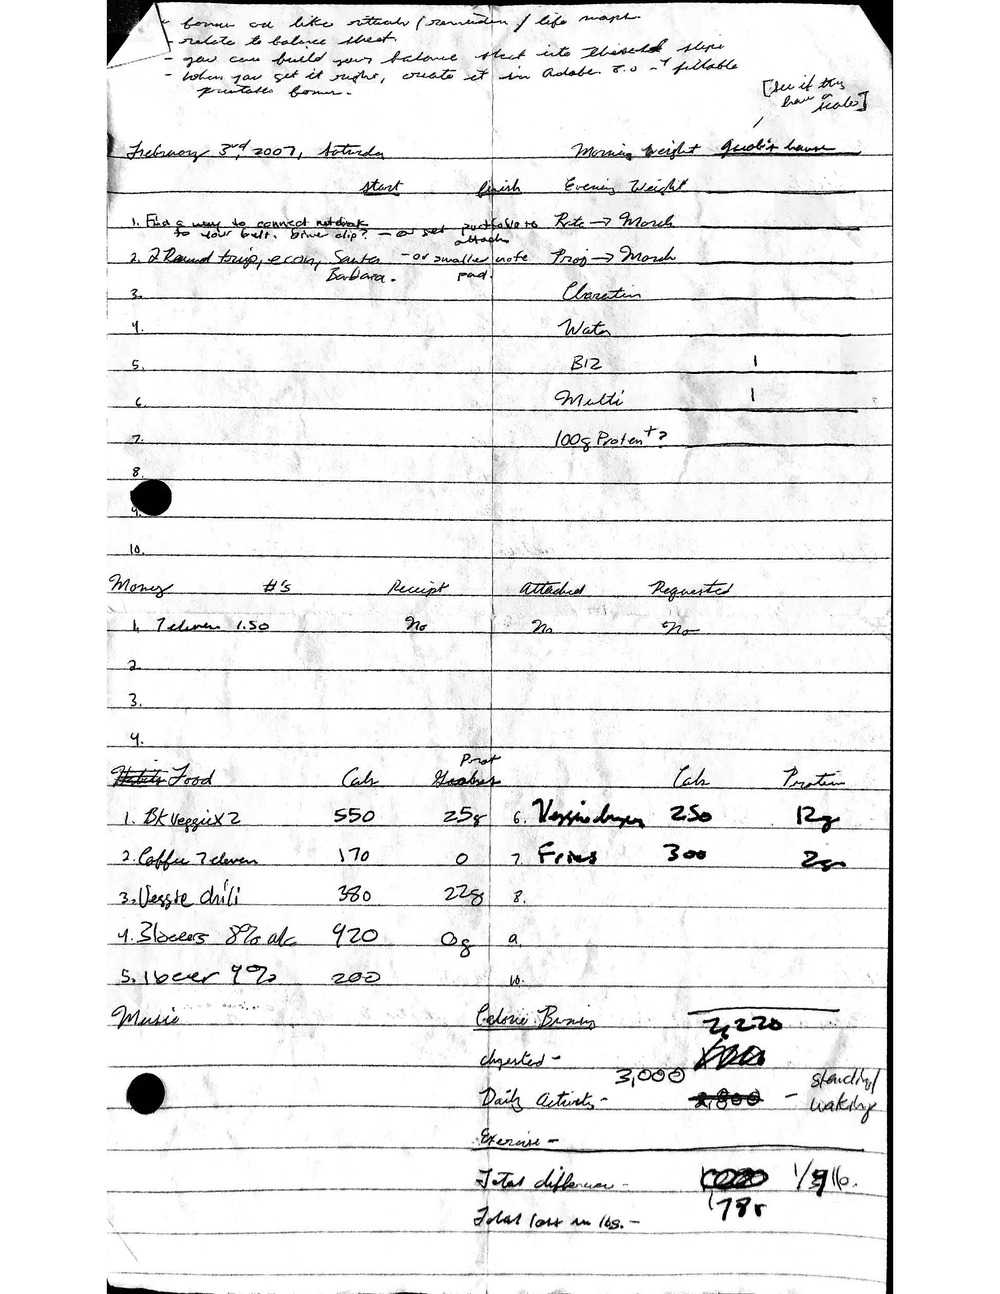 - relate to balance sheet
- you can build your balance sheet into steps
- When you get it right, create it in Adobe 8.0 fillable
printable
[See if they
have a
scale]
February 3rd, 2007, Saturday
Morning Weight
start finish Evening Weight
1. Find a way to connect notebook Rite → March
to your belt. binder clip? - or get to
attach
2. 2 Round trip, econ, Santa - or smaller note Proj → March
Barbara. pad.
3. Claretin
4. Water
5. B12 1
6. Multi 1
7. 100g Protein+?
8.
9.
10.
Money #'s Receipt Attached Requested
1. 7 eleven 1.50 No No No
2.
3.
4.
Prot
Food Cals Cals Protein
1. BK Veggie x 2 550 25g 6. 250 12g
2. Coffee 7 eleven 170 0 7. Fries 300 2g
3. Veggie chili 380 22g 8.
4. 3 beers 8% alc 920 0g 9.
5. 1 beer 9% 200 10.
Music Calorie 2,220
digested -
3,000 standing/
Daily Activity - 2,800 - walking
Exercise -
Total difference - lb.
Total loss in lbs. -